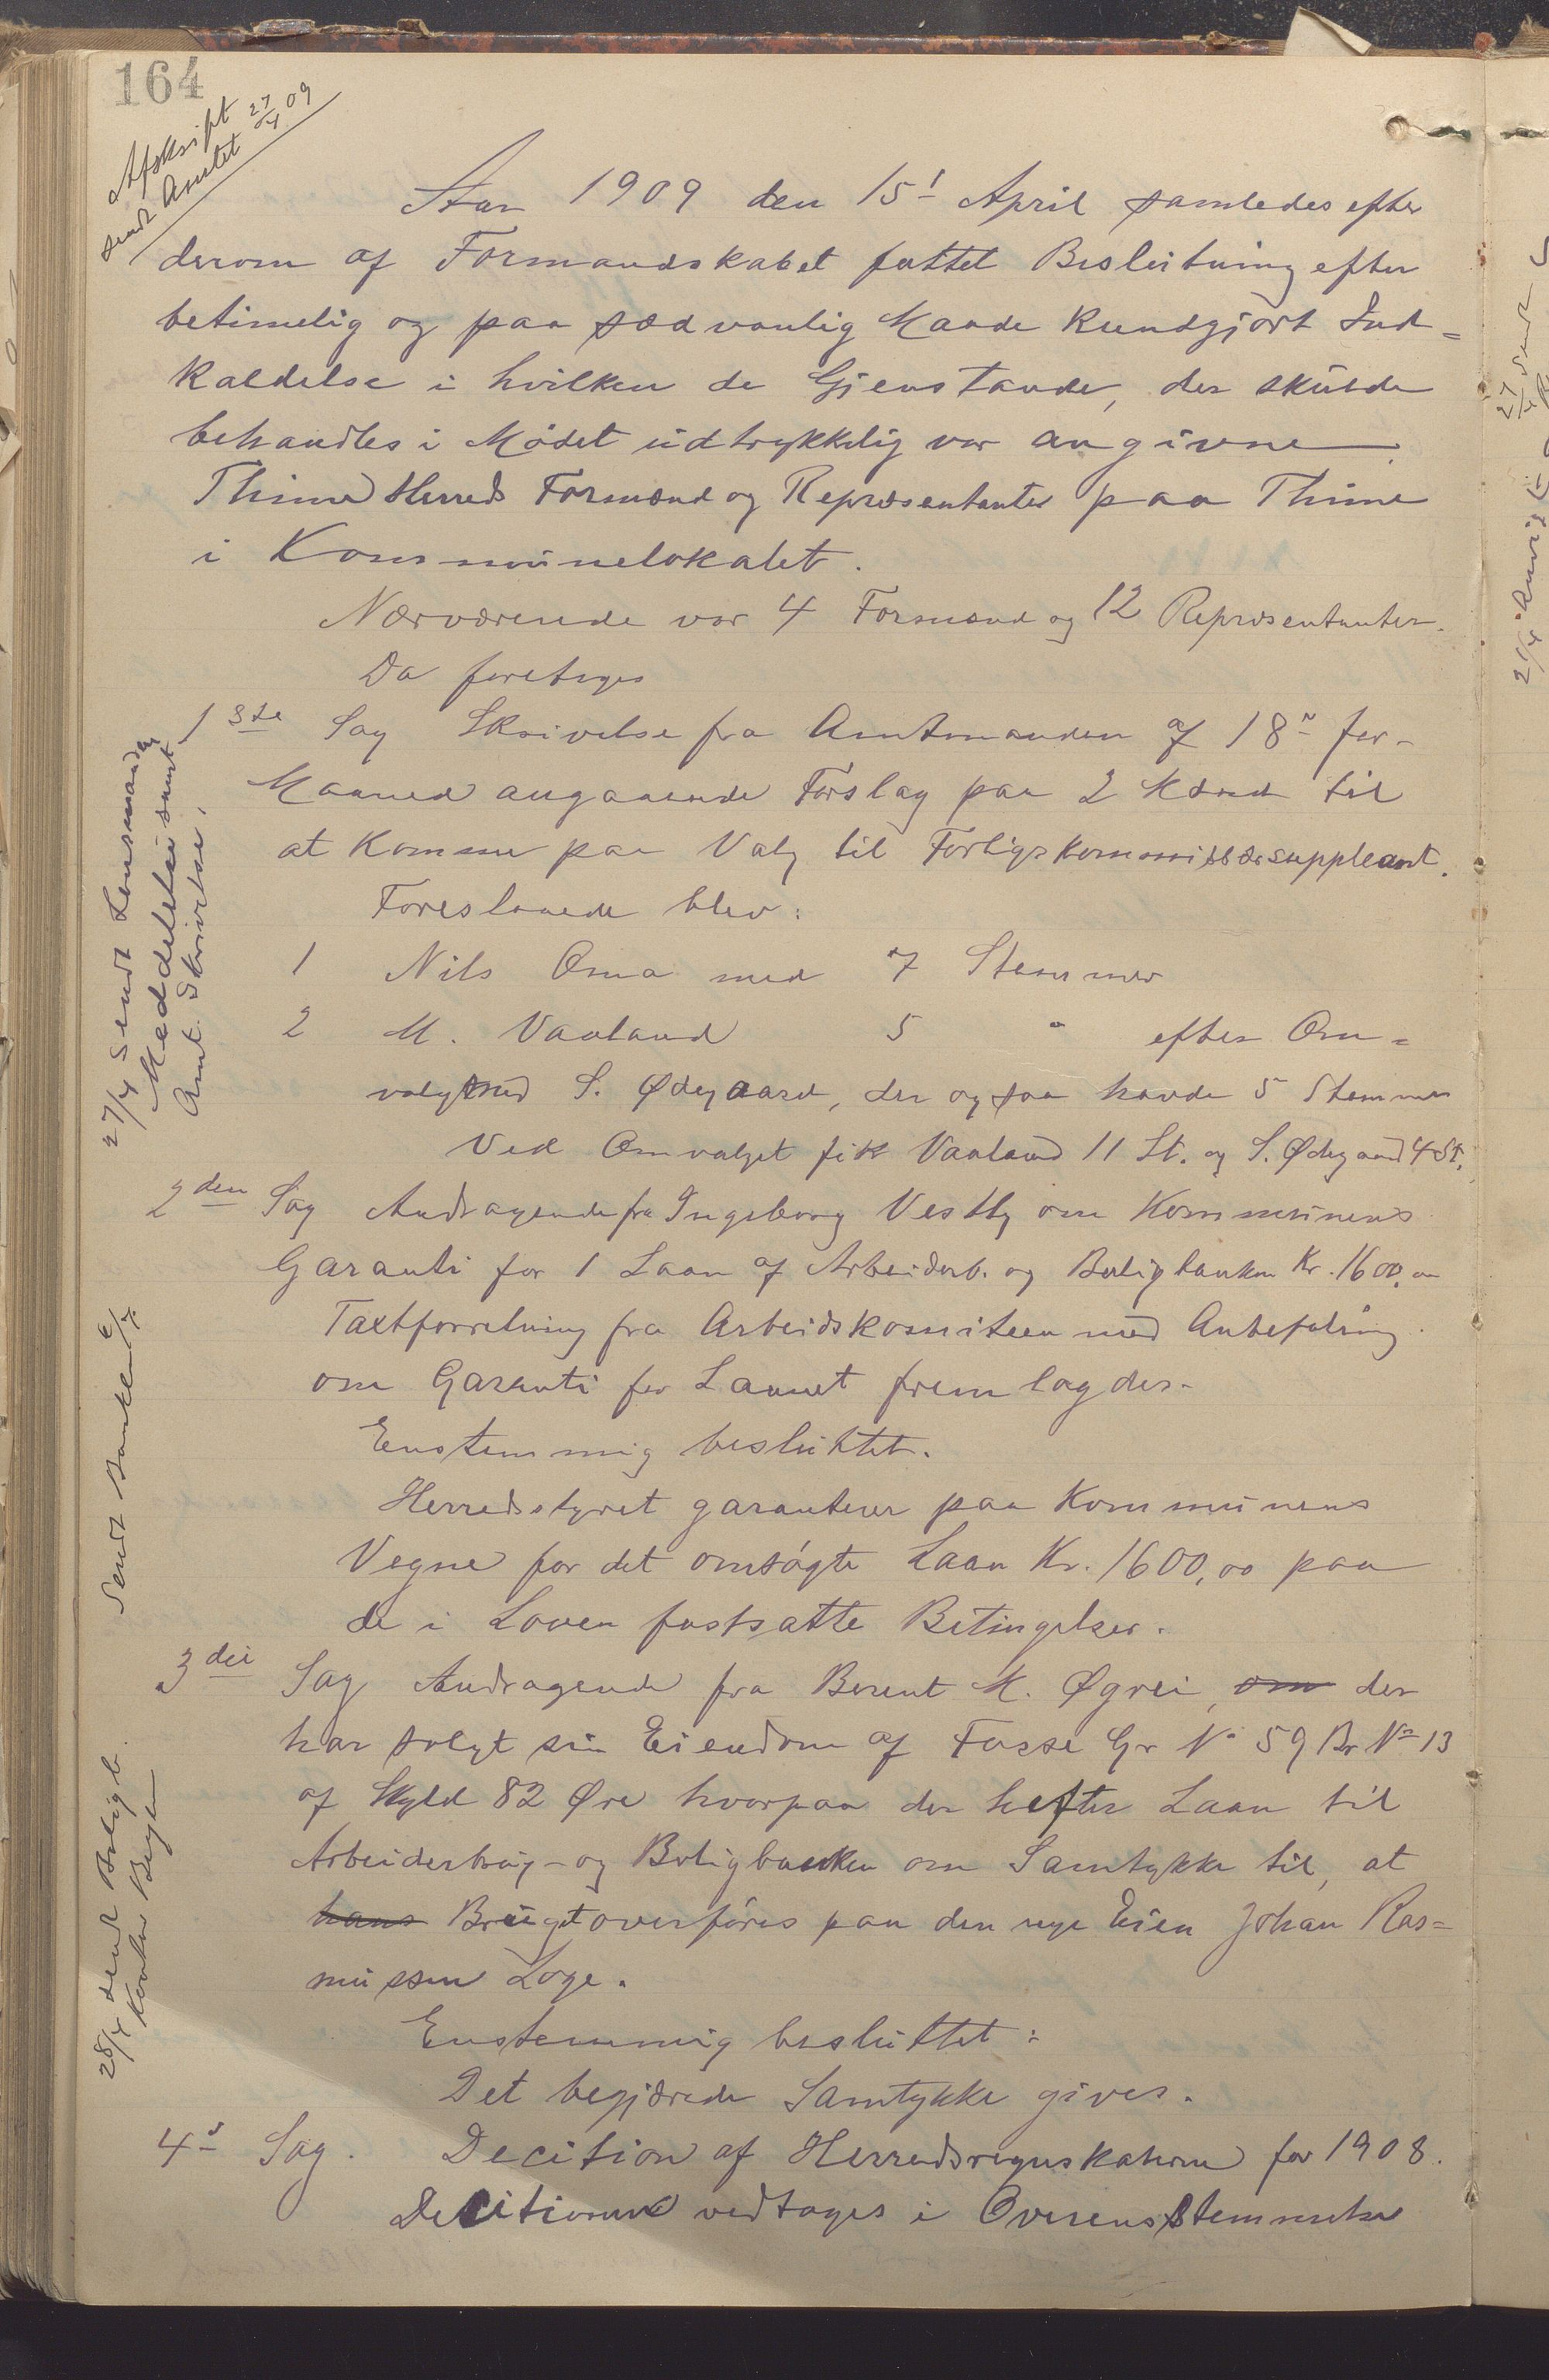 164
Afskrift
sendt Amtet 27/04 09
Aar 1909 den 15' April samledes efter
derom af Formandskabet fattet Beslutning efter
betimelig og paa sædvanlig Maade kundgjort Ind=
kaldelse i hvilken de Gjenstande, der skulde
behandles i Mødet udtrykkelig var angivne
Thime Herreds Formænd og Repræsentanter paa Thime
i Kommunelokalet.
Nærværende var 4 Formænd og 12 Repræsentanter.
Da foretoges
1ste Sag Skrivelse fra Amtmanden af 18 for-
Maaned angaaende Forslag paa 2 Mænd til
at komme paa Valg til Forligskommissærsuppleant.
Foreslaaede blev:
1 Nils Oma med 7 Stemmer
2 M. Vaaland 5 " efter Om=
valg med S. Ødegaard, der ogsaa havde 5 Stemmer
Ved Omvalget fik Vaaland 11 St. og S. Ødegaard 4 St.
27/4 Sendt Lensmanden
Meddelelse samt
Amt. Skrivelse.
2den Sag Andragende fra Ingeborg Vestly om Kommunens
Garanti for 1 Laan af Arbeiderb. og Boligbanken Kr. 1600,00
Taxtforretning fra Arbeidskomiteen med Anbefaling
om Garanti for Laanet fremlagdes.
Enstemmig besluttet.
Herredsstyret garanterer paa Kommunens
Vegne for det omsøgte Laan Kr. 1600,00 paa
de i Loven fastsatte Betingelser.
Sendt Banken
3die Sag Andragende fra Berent M. Øgrei, om der
har solgt sin Eiendom af Fosse Gr No 59 Br No 13
af Skyld 82 Øre hvorpaa der hefter Laan til
Arbeiderbrug- og Boligbanken om Samtykke til, at
hans Bruget overføres paa den nye Eier Johan Ras=
mussen Loge.
Enstemmig besluttet:
Det begjærede Samtykke gives.
28/4 sendt Boligb.
4' Sag. Decition af Herredsregnskaberne for 1908.
Decitionen vedtages i Overensstemmelse